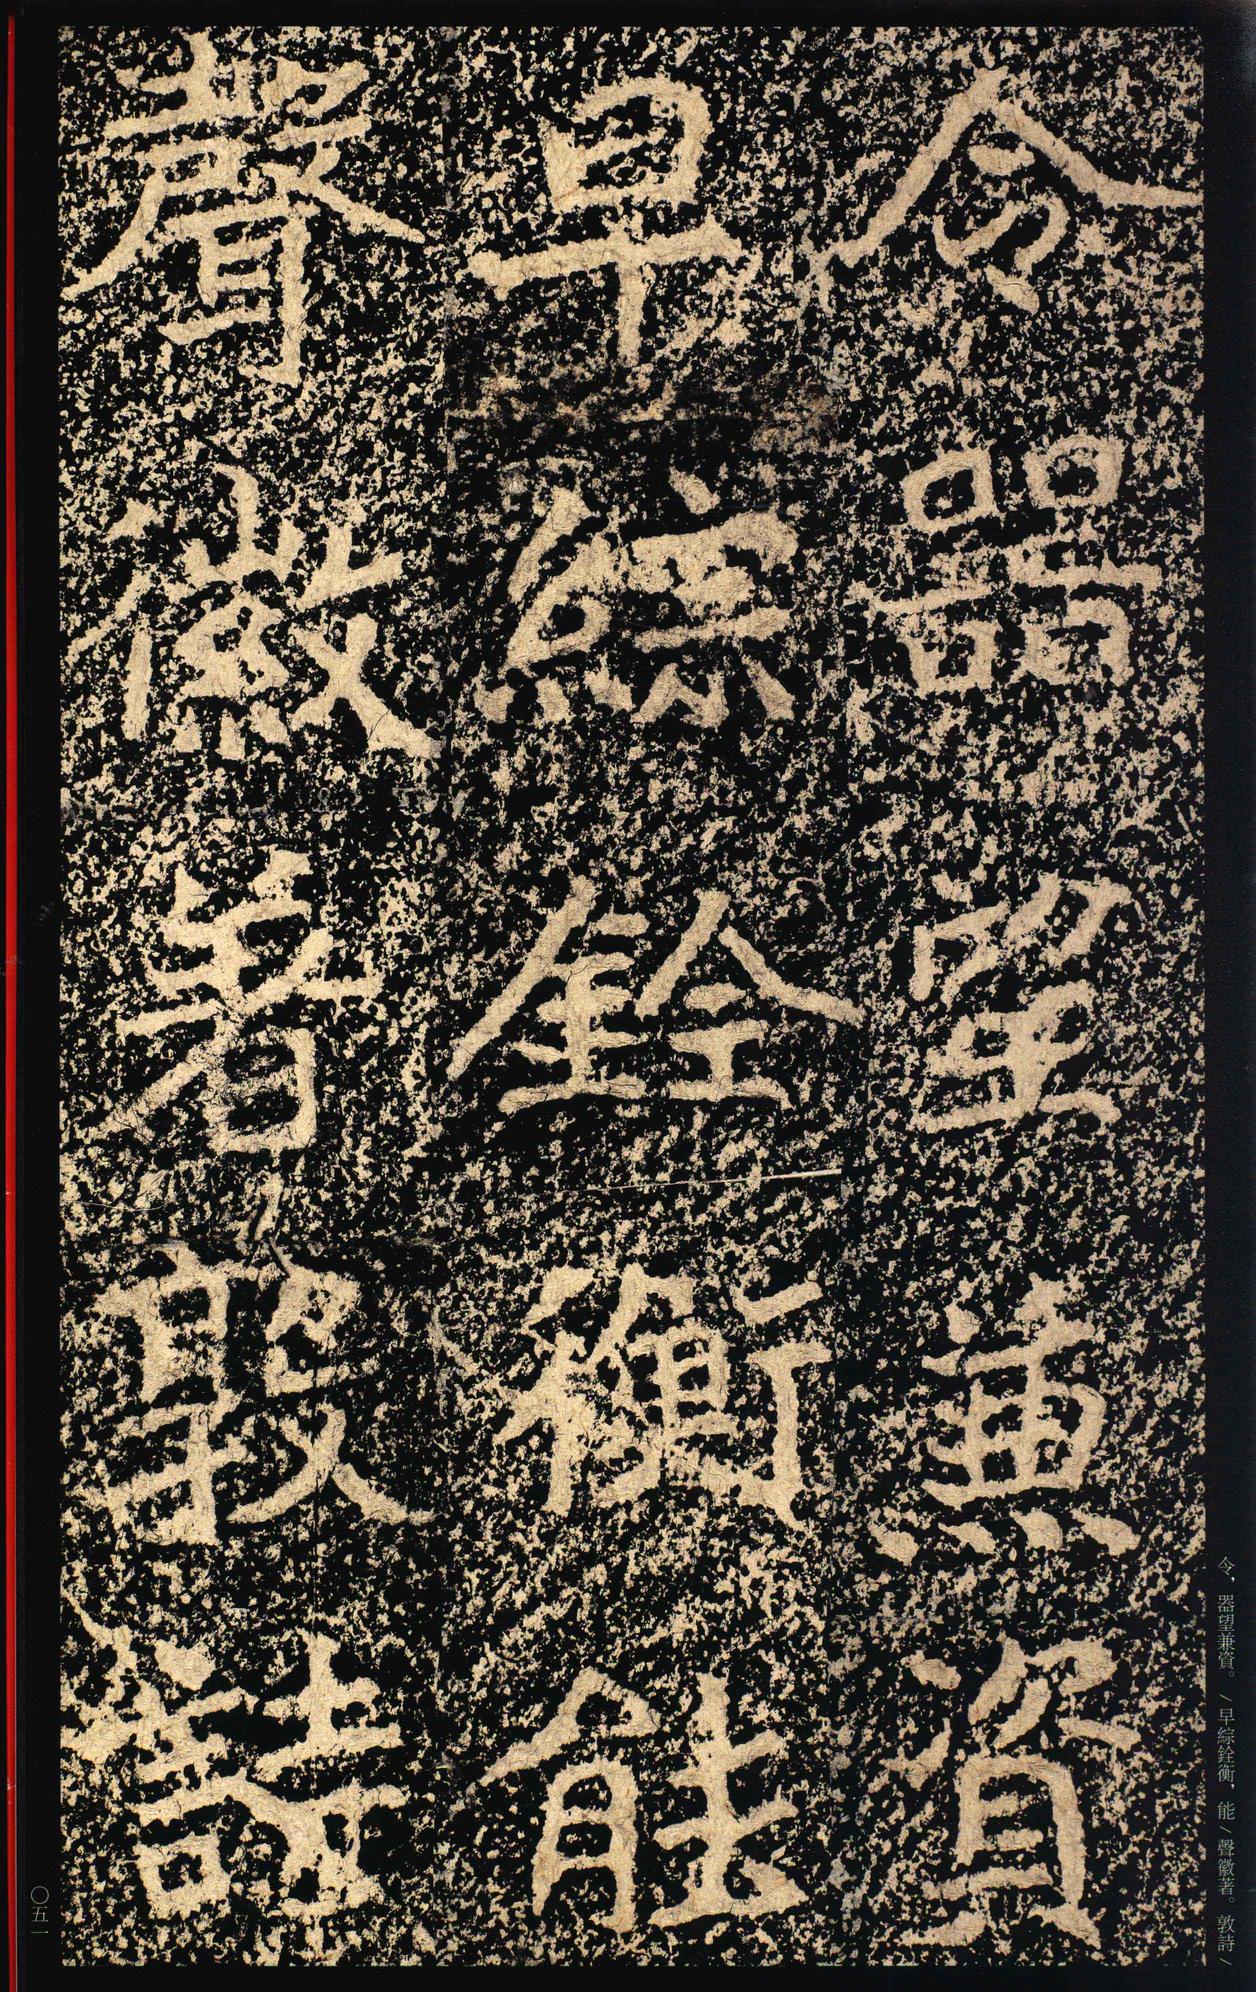 令器望兼資
早綜銓衡能
聲徽著敦詩
令，器望兼資。／早綜銓衡，能／聲徽著。敦詩／
〇五一